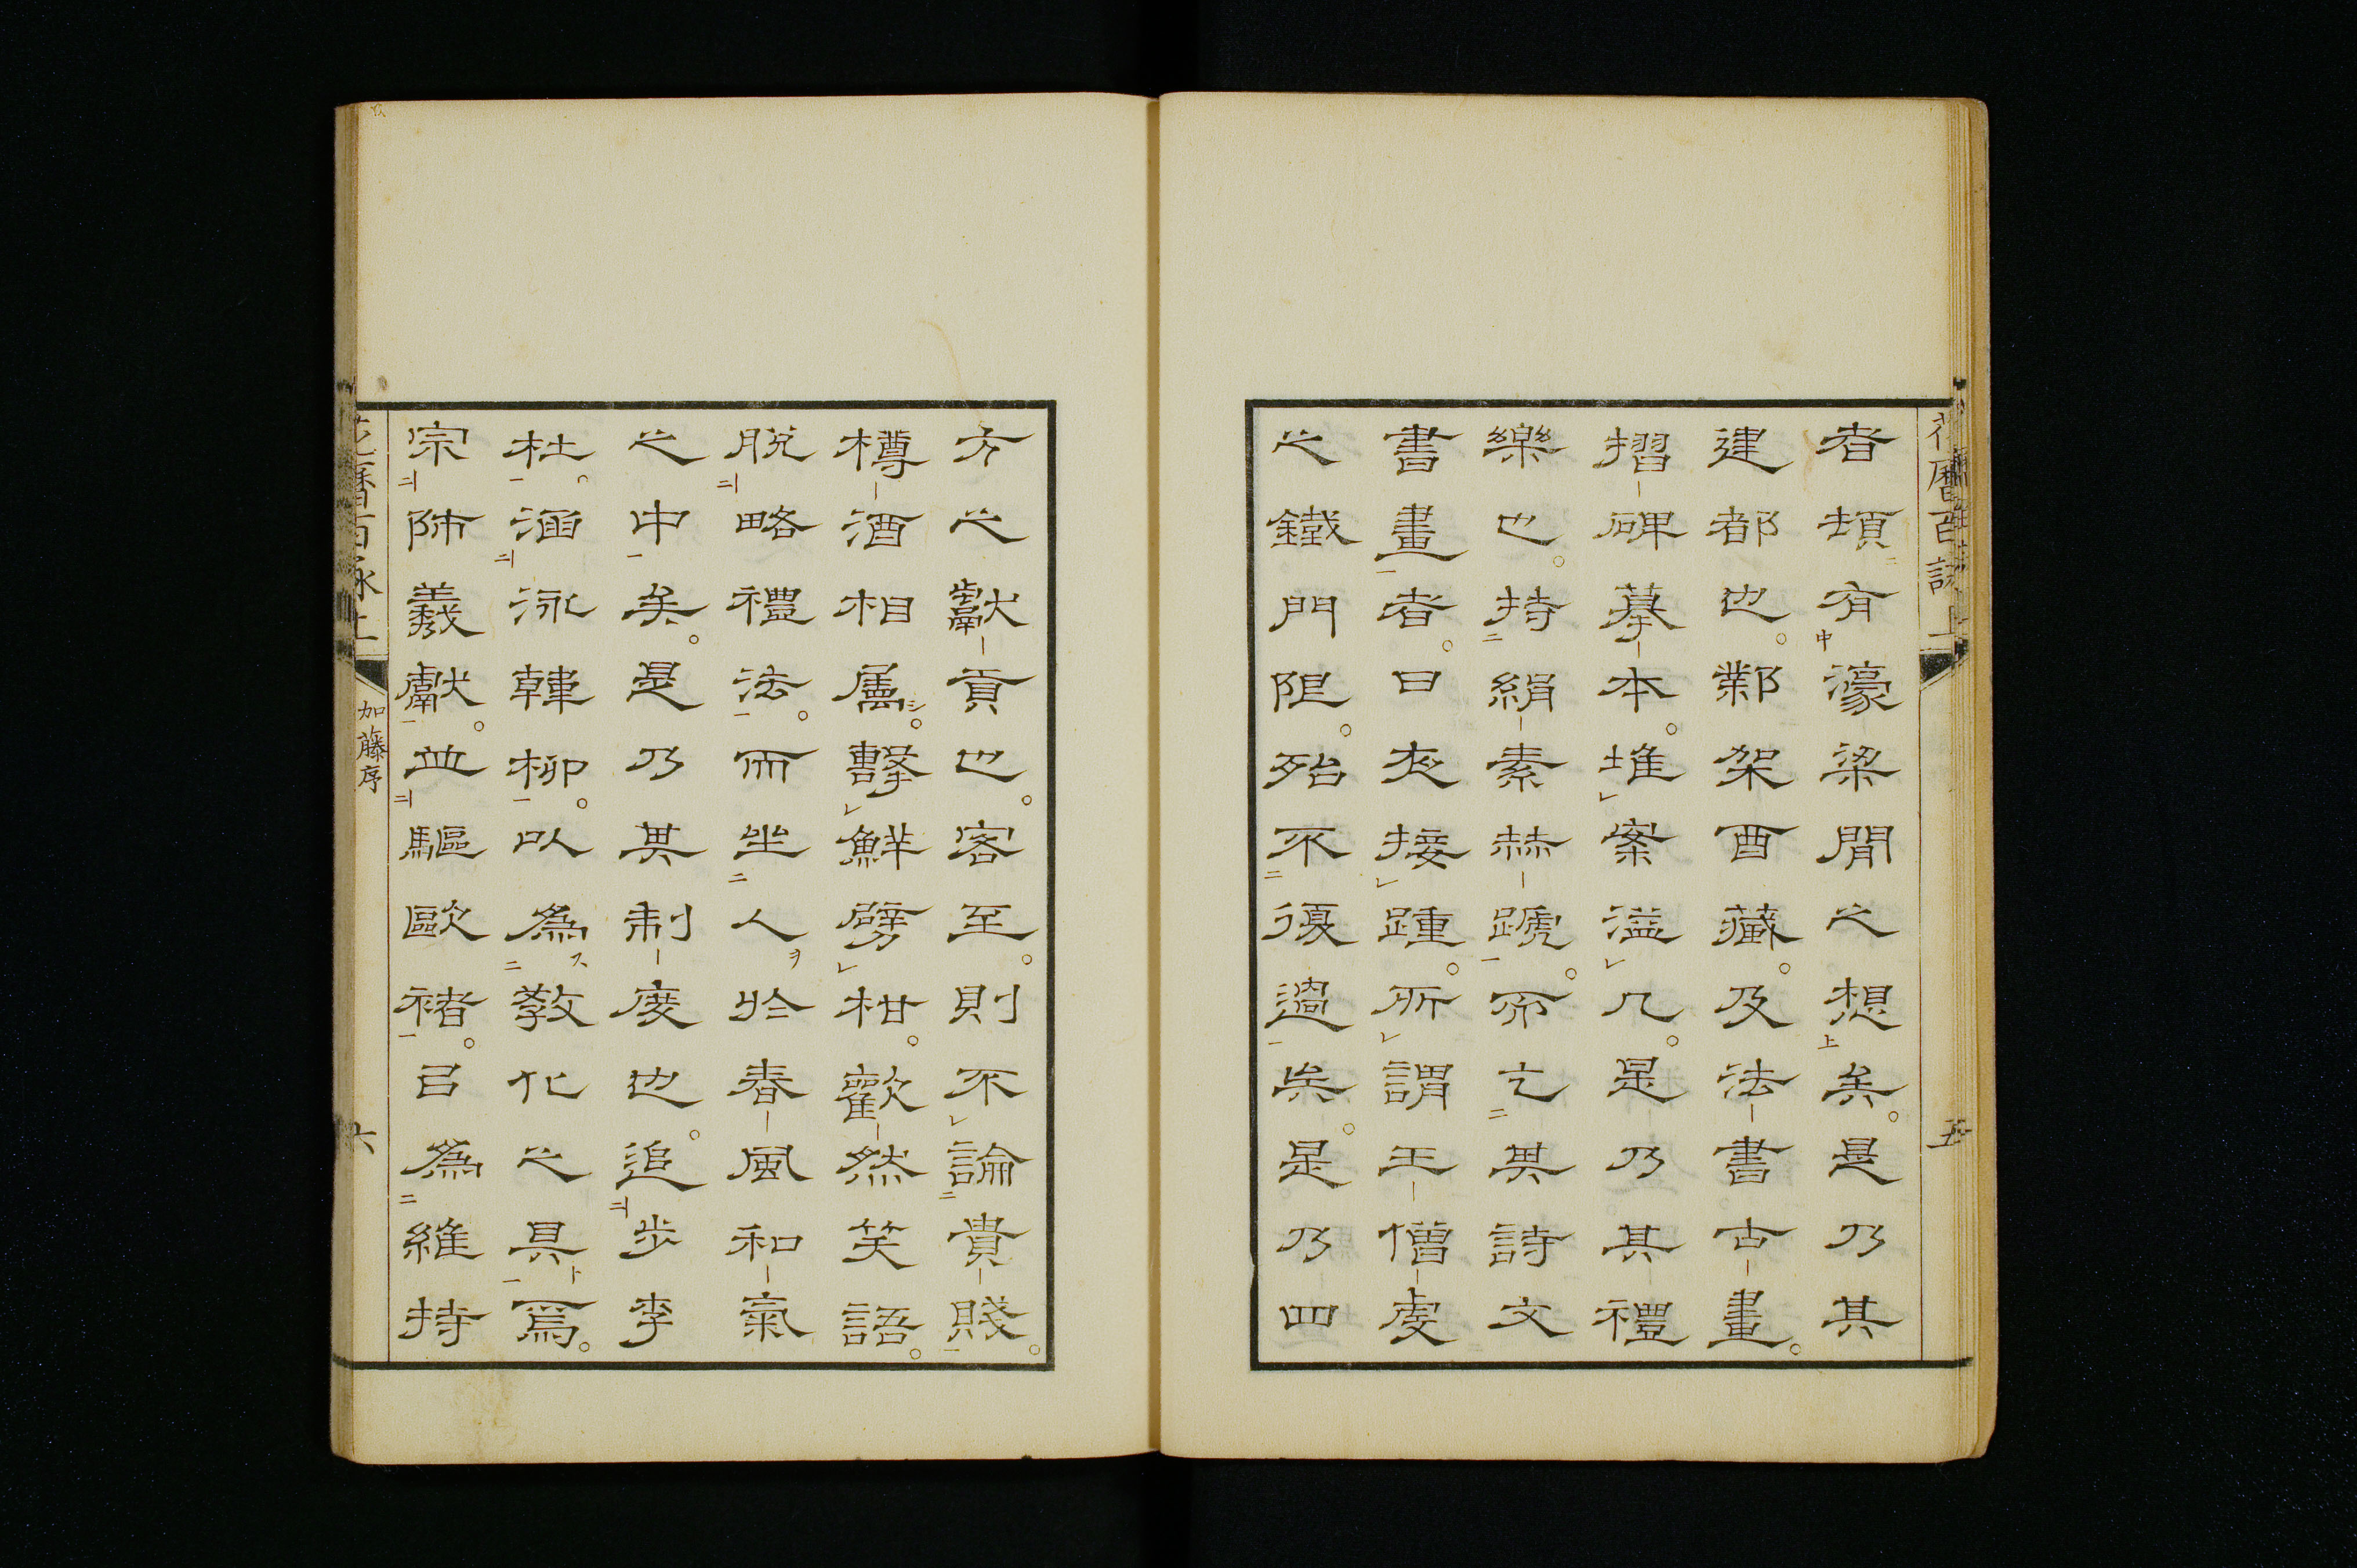 者頓有濠梁閒之想矣。是乃其
建都也。鄴架酉藏。及法書古畫。
搨碑摹本。堆案溢几。是乃其禮
樂也。持絹素赫蹏。而乞其詩文
書畫者。日夜接踵。所謂王僧虔
之鐵門限。殆不復過矣。是乃四
方之獻貢也。客至。則不論貴賤。
樽酒相属。擊鮮劈柑。歡然笑語。
脫略禮法。而坐人於春風和氣
之中矣。是乃其制度也。追步李
杜。涵泳韓柳。以為敎化之具焉。
宗師羲獻。並驅歐褚。以為維持
花曆百詠上
五
花曆百詠上
加藤序
六